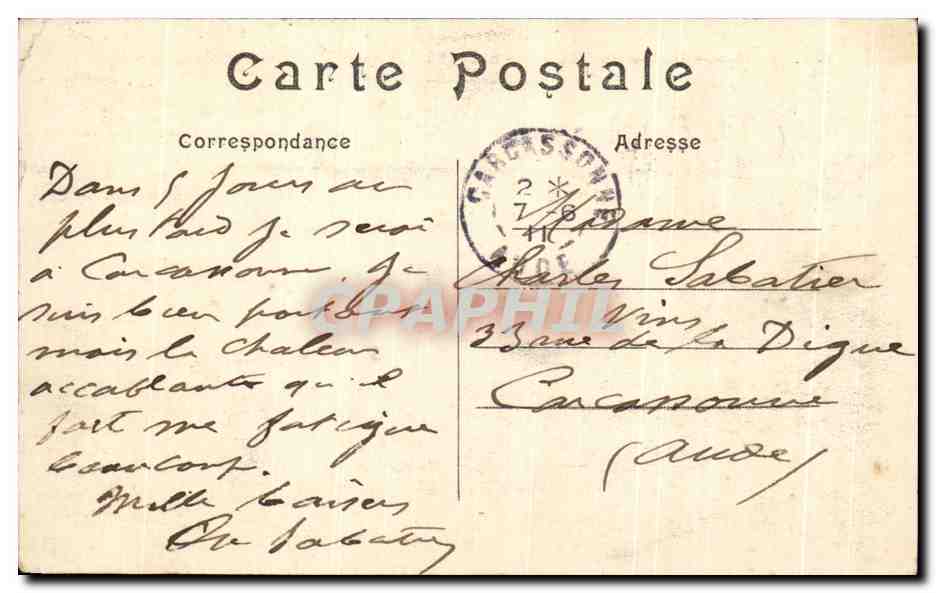 Carte Postale
Correspondance
Adresse
Dans 5 jours au
plus tard je serai
à Carcassonne. Je
suis bien portant
mais la chaleur
accablante qu'il
fait me fatigue
beaucoup.
Mille baisers
Ch Sabatier
CARCASSONNE
2 *
7 -6
AUDE
Madame
Charles Sabatier
Vins
33 rue de la Digue
Carcassonne
(Aude)
CPAPHIL